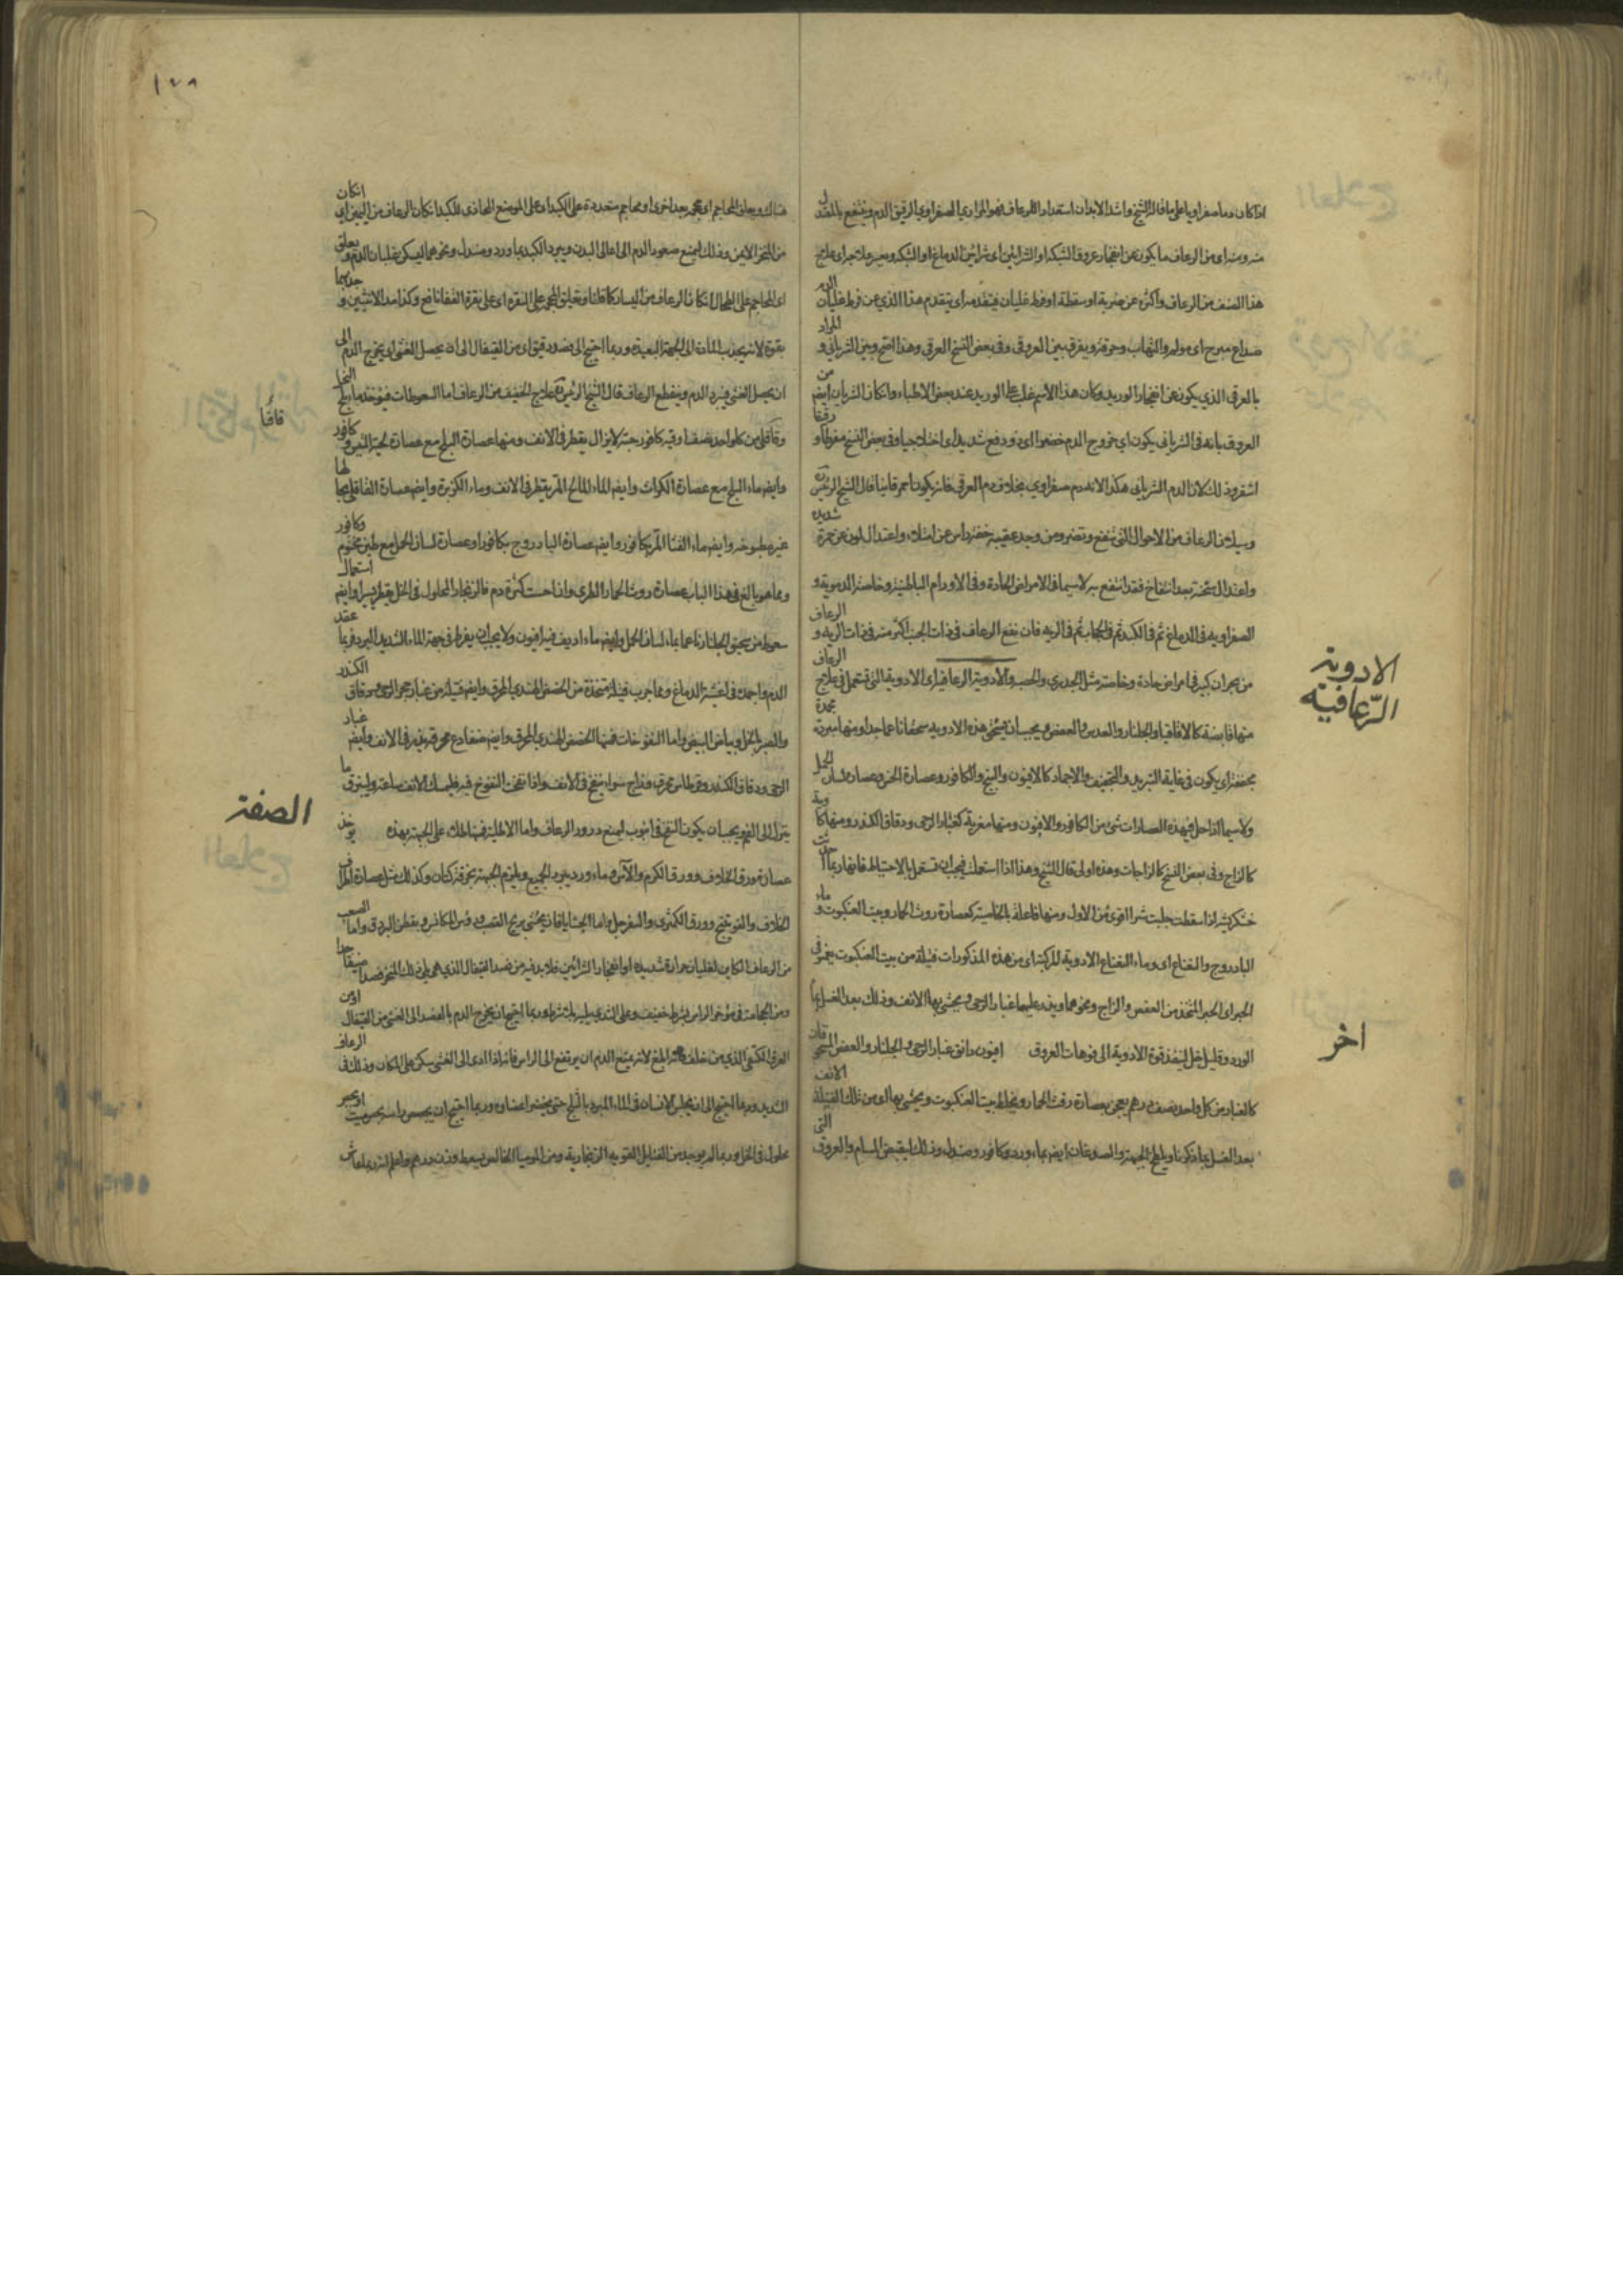 اذا كان دما صفراويا على ما قال الشيخ واشد الابدان استعدادا للرعاف هو المراري الصفراوي الرقيق الدم وينتفع بالمعتدل
منه ومنه اى من الرعاف ما يكون عن انفجار عروق الشبكة او الشرائين اى شرائين الدماغ او الشبكة ويعسر علاجه اى علاج
هذا الصنف من الرعاف واكثره عن ضربة او سقطة او فرط غليان فيتقدمه اى يتقدم هذا الذي من فرط غليان الدم
صداع مبرح اى مولم والتهاب وحرقة ويفرق بين العروقى وفى بعض النسخ العرقى وهذا اصح وبين الشرياني و المراد
بالعرقى الذي يكون عن انفجار الوريد وكان هذا الاسم غلب على الوريد عند بعض الاطباء وان كان الشريان ايضا من
العروق بانه فى الشرياني يكون اى خروج الدم حفزا اى ذو دفع شديد اى اختلاجيا وفى بعض النسخ مفرطا و رقيقا
اشقر وذلك لان الدم الشرياني هكذا لانه دم صفراوي بخلاف دم العرقى فانه يكون احمر قانيا قال الشيخ الرئيس
وسيلان الرعاف من الاحوال التى تنفع وتضر ومن وجد عقيبه خفة راس عن امتلاء واعتدال لون عن حمرة شديده
واعتدال سحنة بعد انتفاخ فقد انتفع به لا سيما فى الامراض الحادة وفى الاورام الباطنية وخاصة الدموية و
الصفراويه فى الدماغ ثم فى الكبد ثم فى الحجاب ثم فى الريه فان نفع الرعاف فى ذات الجنب اكثر منه فى ذات الريه و الرعاف
من بحران كبير فى امراض حادة وخاصة مثل الجدري والحصبه والادوية الرعافية اى الادوية التى تستعمل فى علاج الرعاف
منها قابضة كالاقاقيا والجلنار والعدس والعفص ويجب ان يسحق هذه الادويه سحقا ناعما جدا ومنها مبردة مجمدة
مجففة اى يكون فى غاية التبريد والتجفيف والاجماد كالافيون والبنج والكافور وعصارة الخس وعصارة لسان الحمل
ولا سيما اذا حل فى هذه العصارات شئ من الكافور والافيون ومنها مغرية كغبار الرحى ودقاق الكندر ومنها كاوية
كالزاج وفى بعض النسخ كالزاجات وهذه اولى قال الشيخ وهذا اذا استعملت فيجب ان تستعمل بالاحتياط فانها ربما احدثت
خشكريشة اذا سقطت جلبت شرا اقوى من الاول ومنها فاعلة بالخاصية كعصارة روث الحمار وبيت العنكبوت و ماء
البادروج والنعناع اى وماء النعناع الادوية المركبة اى من هذه المذكورات فتيلة من بيت العنكبوت يغمر فى
الحبر اى الحبر المتخذ من العفص والزاج ونحوهما ويذر عليها غبار الرحى ويحشى بها الانف وذلك بعد الغسل بماء
الورد وقليل خل لينفذ قوة الادوية الى فوهات العروق افيون دانق غبار الرحى والجلنار والعفص المسحوقان
كالغبار من كل واحد نصف درهم يعجن بعصارة روث الحمار ويخلط ببيت العنكبوت ويحشى بها اى من تلك الفتيلة الانف
بعد الغسل بما ذكرنا ويلطخ الجبهة والصدغان ايضا بماء ورد وكافور وصندل وذلك ليقبض المسام والعروق التى
الادوية
الرعافية
اخر
١٧٨
هناك ويعلق المحاجم اى محجمة بعد اخرى او محاجم متعددة على الكبد او على الموضع المحاذى للكبد ان كان الرعاف من اليمين اى ان كان
من المنخر الايمن وذلك ليمنع صعود الدم الى اعالى البدن ويبرد الكبد بماورد وصندل ونحوهما ليسكن غليان الدم ويعلق
اى المحاجم على الطحال ان كان الرعاف من اليسار كما قلنا وتعليق المحجمة على النقرة اى على نقرة القفا نافع وكذا مد الانثيين و جذبهما
بقوة لانه يجذب المادة الى الجهة البعيدة وربما احتيج الى فصد دقيق اى من القيفال الى ان يحصل الغشى اى يخرج الدم الى
ان يحصل الغشى فيبرد الدم وينقطع الرعاف قال الشيخ الرئيس علاج الخفيف من الرعاف اما السعوطات فيؤخذ ماء بلح النخل
وقاقلى من كل واحد نصف اوقيه كافور حبة لا يزال يقطر فى الانف ومنها عصارة البلح مع عصارة لحية التيس و كافور
وايضا ماء البلح مع عصارة الكراث وايضا الماء المالح المر يقطر فى الانف وماء الكزبرة وايضا عصارة القاقلى بحالها
غير مطبوخه وايضا ماء القثا المر بكافور وايضا عصارة البادروج بكافور او عصارة لسان الحمل مع طين مختوم وكافور
ومما هو بالغ فى هذا الباب عصارة روث الحمار الطرى واذا احست كثرة دم فالزنجار المحلول فى الخل يقطر يسيرا وايضا استعمال
سعوط من سحيق الجلنار ناعما بماء لسان الحمل وايضا ماء اديف فيه افيون ولا يجب ان يفرط فى جهة الماء الشديد البرد فربما عقد
الدم واجمده فى اغشية الدماغ ومما جرب فتيلة متخذة من الحضض الهندي المحرق وايضا فتيلة من غبار حجر الرحى ودقاق الكندر
والصبر بالخل وبياض البيض واما النفوخات فمنها الحضض الهندى المحرق وايضا ضفادع محرقة يذر فى الانف وايضا غبار
الرحى ودقاق الكندر وقرطاس محرق وزاج سواء ينفخ فى الانف واذا نفخت النفوخ فيه فليمسك الانف ساعة وليبزق ما
ينزل الى الفم ويجب ان يكون النفخ فى انبوب ليمنع درور الرعاف واما الاطلية فمنها طلاء على الجبهة بهذه يوخذ
عصارة ورق الخلاف وورق الكرم والاس وماء ورد يبرد الجميع ويلزم الجبهة بخرقة كتان وكذلك مثل عصارة اطراف
الخلاف والعوسج وورق الكمثرى والسفرجل واما الحشايا فان يحشى بريح القصب وقشر المكانس وبقطن البردى واما الصعب
من الرعاف الكاين لغليان حرارة شديدة او انفجار الشرائين فلا بد فيه من فصد القيفال الذي هو يلى ذلك المنخر فصدا ضيقا جدا
ومن الحجامة فى مؤخر الراس بشرط خفيف وعلى الثدي يليه بلا شرط وربما احتيج ان يخرج الدم بالفصد الى الغشى من القيفال او من
العرق الكتفى الذي من خلف فانه ابلغ لانه يمنع الدم ان يرتفع الى الراس فانه اذا ادى الى الغشى سكن على المكان وذلك فى الرعاف
الشديد وربما احتيج الى ان يجلس الانسان فى الماء المبرد بالثلج حتى يخضر اعضاوه وربما احتيج ان يجصص راسه بجص ميت او بجبر
محلول فى الخل وربما لم يوجد من الفتايل القويه الزنجارية ومن الموميا الخالص يسعط وزن درهم واعلم انه ربما عاش
قاقيا
الصفة